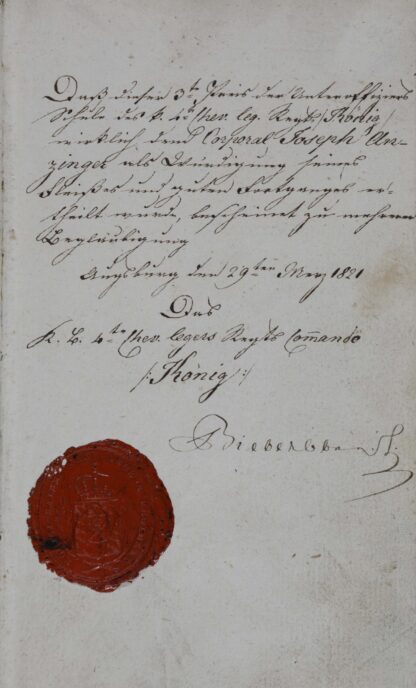 Daß dieser 3te Preis der Unteroffiziers
Schule des k. 4ten Chev. leg. Regts /: König :/
wirklich dem Corporal Joseph An-
zinger als Würdigung seines
Fleißes und guten Fortganges er-
theilt wurde, bescheinet zu mehrerer
Begläubigung
Augsburg den 29ten Merz 1821
Das
K. B. 4te Chev. legers Regts Commando
/: König :/